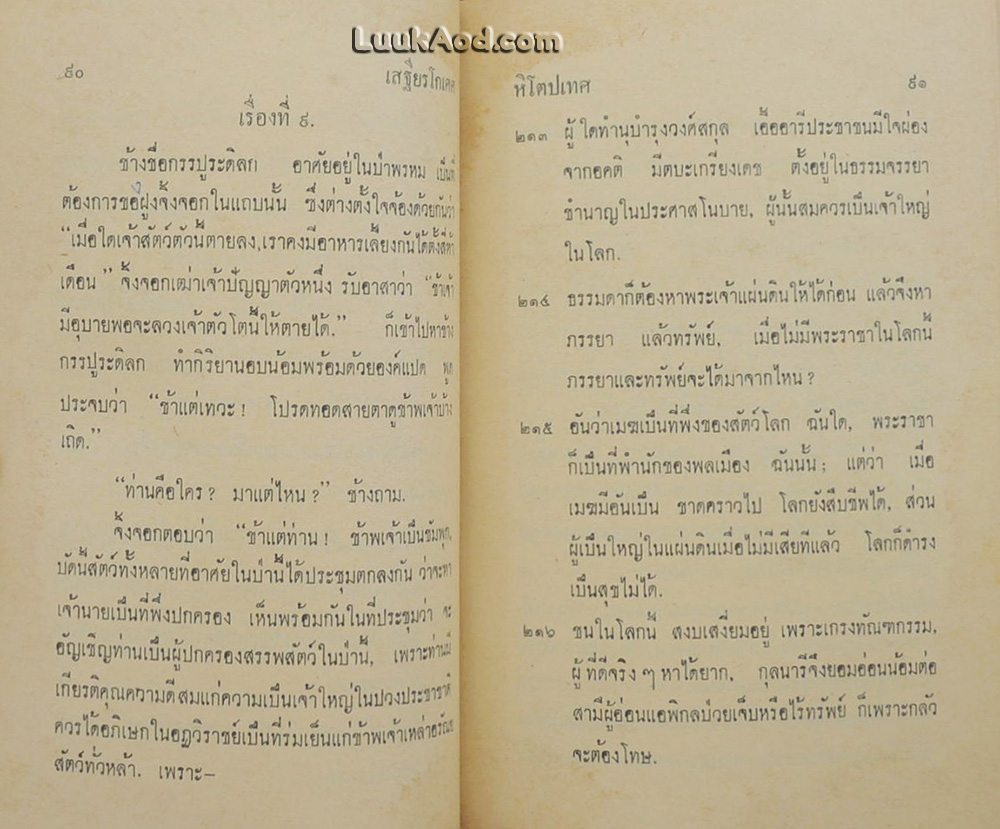 LuukAod.com
๙๐ เสฐียรโกเศศ
เรื่องที่ ๙.
ช้างชื่อกรรปูระดิลก อาศัยอยู่ในป่าพรหม เป็นที่
ต้องการของฝูงจิ้งจอกในแถบนั้น ซึ่งต่างตั้งใจจ้องด้วยกันว่า
“เมื่อใดเจ้าสัตว์ตัวนี้ตายลง, เราคงมีอาหารเลี้ยงกันได้ตั้งสี่ห้า
เดือน” จิ้งจอกเฒ่าเจ้าปัญญาตัวหนึ่ง รับอาสาว่า “ข้าเจ้า
มีอุบายพอจะลวงเจ้าตัวโตนี้ให้ตายได้.” ก็เข้าไปหาช้าง
กรรปูระดิลก ทำกิริยานอบน้อมพร้อมด้วยองค์แปด พูด
ประจบว่า “ข้าแต่เทวะ! โปรดทอดสายตาดูข้าพเจ้าบ้าง
เถิด.”
“ท่านคือใคร? มาแต่ไหน?” ช้างถาม.
จิ้งจอกตอบว่า “ข้าแต่ท่าน! ข้าพเจ้าเป็นชัมพุก,
บัดนี้สัตว์ทั้งหลายที่อาศัยในป่านี้ได้ประชุมตกลงกัน ว่าจะหา
เจ้านายเป็นที่พึ่งปกครอง เห็นพร้อมกันในที่ประชุมว่า จะ
อัญเชิญท่านเป็นผู้ปกครองสรรพสัตว์ในป่านี้, เพราะท่านมี
เกียรติคุณความดีสมแก่ความเป็นเจ้าใหญ่ในปวงประชาชาติ
ควรได้อภิเษกในอฏวิราชย์เป็นที่ร่มเย็นแก่ข้าพเจ้าเหล่าอรัณย
สัตว์ทั่วหล้า. เพราะ—
หิโตปเทศ ๙๑
๒๑๓ ผู้ใดทำนุบำรุงวงศ์สกุล เอื้ออารีประชาชนมีใจผ่อง
จากอคติ มีตบะเกรียงเดช ตั้งอยู่ในธรรมจรรยา
ชำนาญในประศาสโนบาย, ผู้นั้นสมควรเป็นเจ้าใหญ่
ในโลก.
๒๑๔ ธรรมดาก็ต้องหาพระเจ้าแผ่นดินให้ได้ก่อน แล้วจึงหา
ภรรยา แล้วทรัพย์, เมื่อไม่มีพระราชาในโลกนี้
ภรรยาและทรัพย์จะได้มาจากไหน?
๒๑๕ อันว่าเมฆเป็นที่พึ่งของสัตว์โลก ฉันใด, พระราชา
ก็เป็นที่พำนักของพลเมือง ฉันนั้น; แต่ว่า เมื่อ
เมฆมีอันเป็น ขาดคราวไป โลกยังสืบชีพได้, ส่วน
ผู้เป็นใหญ่ในแผ่นดินเมื่อไม่มีเสียทีแล้ว โลกก็ดำรง
เป็นสุขไม่ได้.
๒๑๖ ชนในโลกนี้ สงบเสงี่ยมอยู่ เพราะเกรงทัณฑกรรม,
ผู้ที่ดีจริง ๆ หาได้ยาก, กุลนารีจึงยอมอ่อนน้อมต่อ
สามีผู้อ่อนแอพิกลป่วยเจ็บหรือไร้ทรัพย์ ก็เพราะกลัว
จะต้องโทษ.